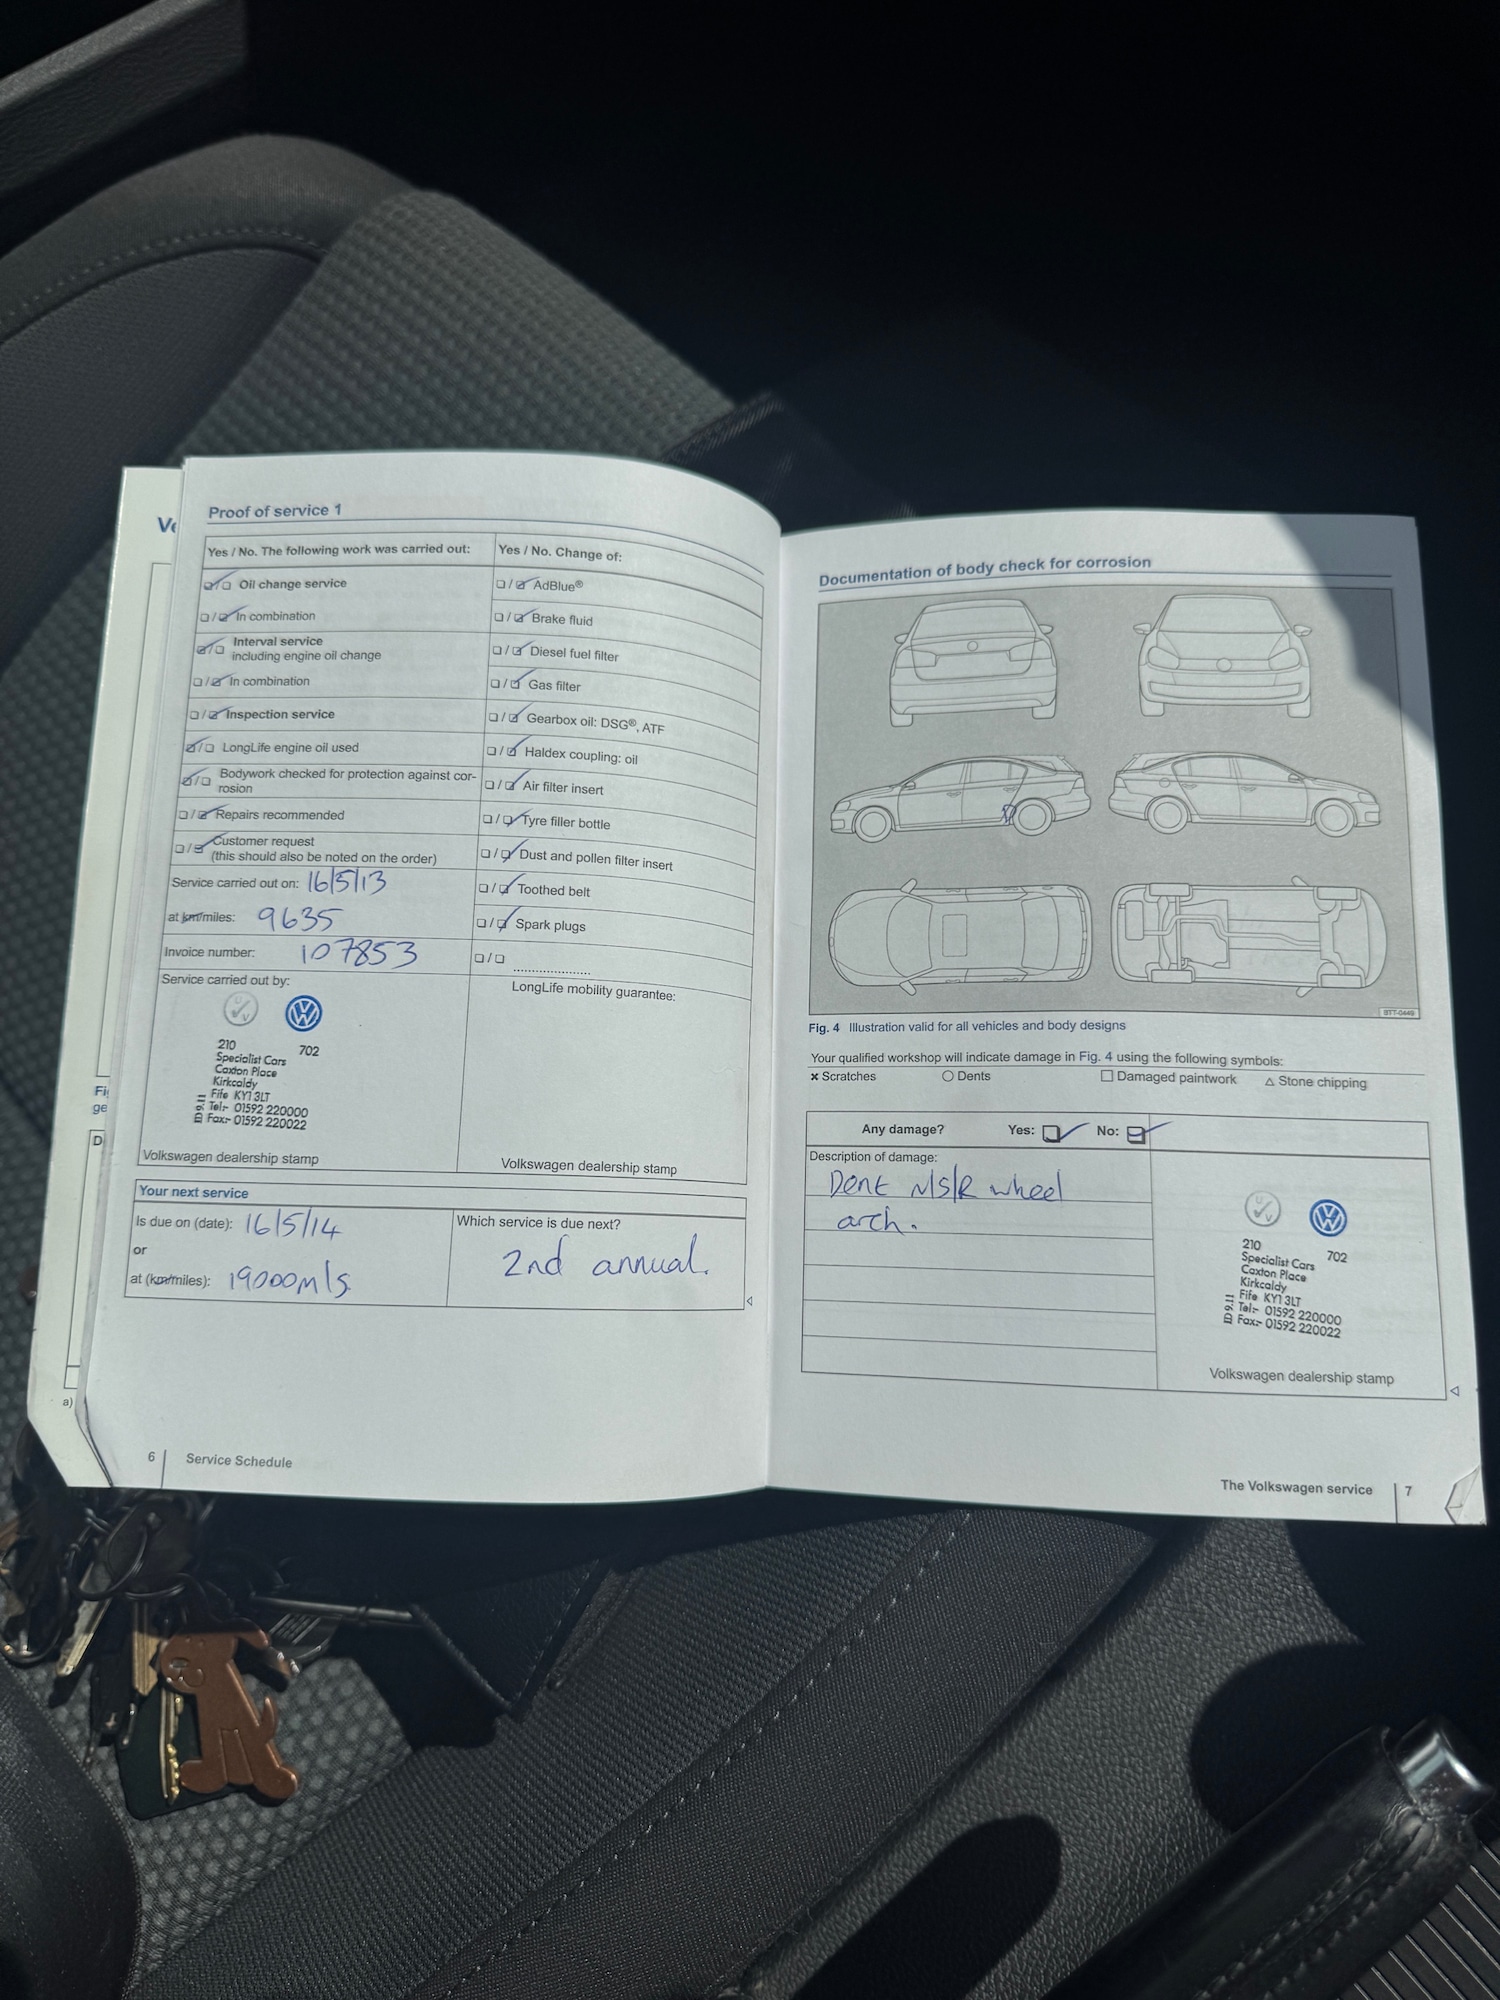 Proof of service 1
Yes / No. The following work was carried out:
Oil change service
In combination
Interval service
including engine oil change
In combination
Inspection service
LongLife engine oil used
Bodywork checked for protection against cor-
rosion
Repairs recommended
Customer request
(this should also be noted on the order)
Service carried out on: 16/5/13
at km/miles: 9635
Invoice number: 107853
Service carried out by:
210
702
Specialist Cars
Caxton Place
Kirkcaldy
Fife KY1 3LT
Tel:- 01592 220000
Fax:- 01592 220022
Volkswagen dealership stamp
Yes / No. Change of:
AdBlue®
Brake fluid
Diesel fuel filter
Gas filter
Gearbox oil: DSG®, ATF
Haldex coupling: oil
Air filter insert
Tyre filler bottle
Dust and pollen filter insert
Toothed belt
Spark plugs
LongLife mobility guarantee:
Volkswagen dealership stamp
Your next service
Is due on (date): 16/5/14
or
at (km/miles): 19000mls.
Which service is due next?
2nd annual.
6 Service Schedule
Documentation of body check for corrosion
BTT-0449
Fig. 4 Illustration valid for all vehicles and body designs
Your qualified workshop will indicate damage in Fig. 4 using the following symbols:
× Scratches ○ Dents □ Damaged paintwork △ Stone chipping
Any damage? Yes: No:
Description of damage:
Dent N/S/R wheel
arch.
210
702
Specialist Cars
Caxton Place
Kirkcaldy
Fife KY1 3LT
Tel:- 01592 220000
Fax:- 01592 220022
Volkswagen dealership stamp
The Volkswagen service 7